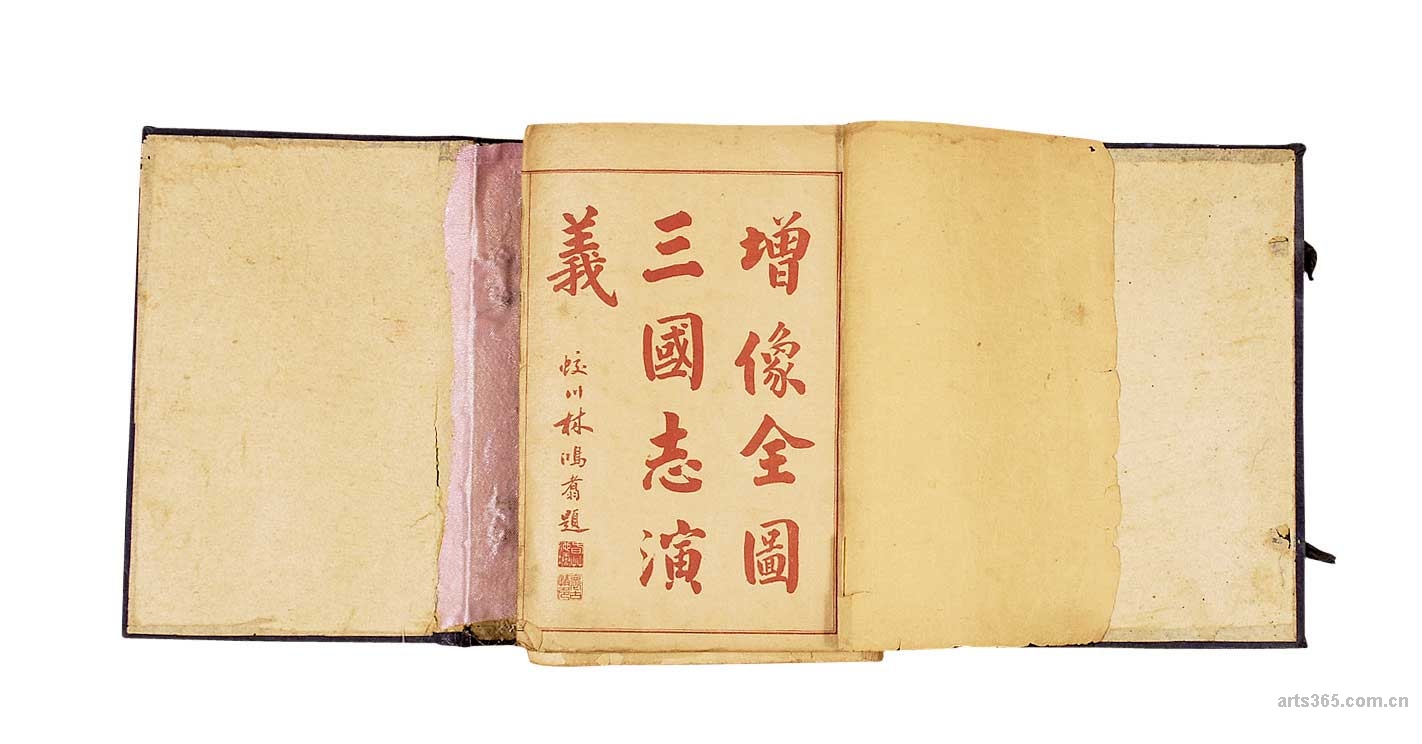 增像全圖
三國志演
義
蛟川林鴻翥題
arts365.com.cn